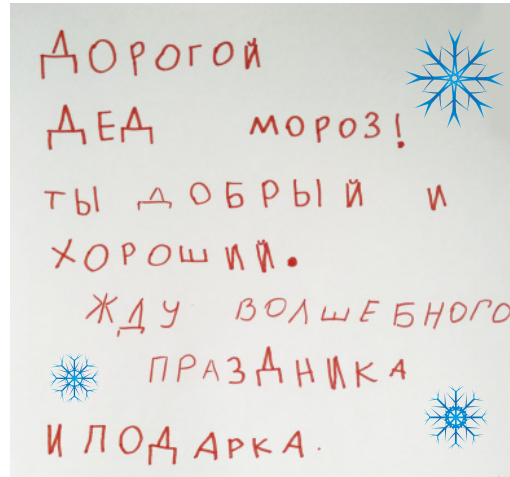 ДОРОГОЙ
ДЕД МОРОЗ!
ТЫ ДОБРЫЙ И
ХОРОШИЙ.
ЖДУ ВОЛШЕБНОГО
ПРАЗДНИКА
И ПОДАРКА.